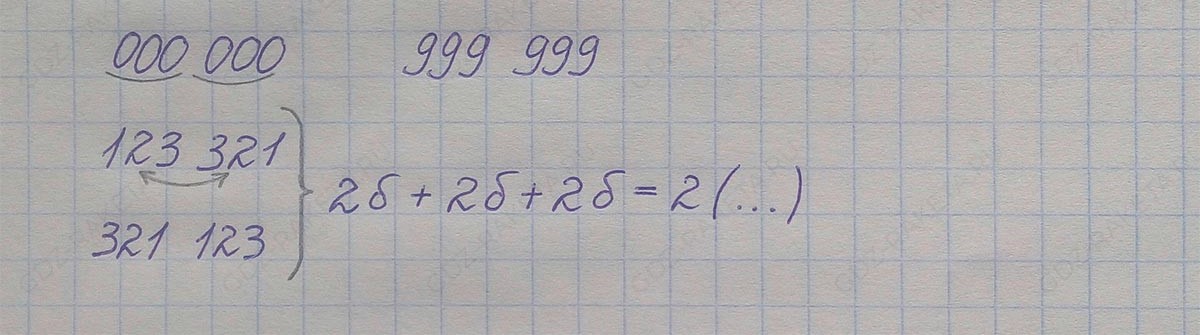 000 000 999 999
123 321
2б + 2б + 2б = 2 (...)
321 123